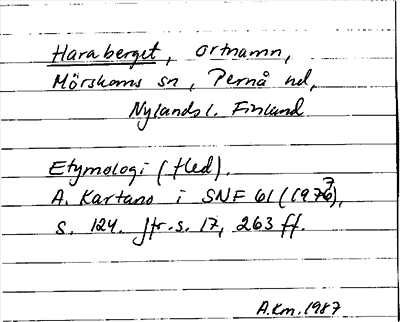 Haraberget, ortnamn,
Mörskoms sn, Pernå hd,
Nylands l. Finland
Etymologi (fled).
A. Kartano i SNF 61 (1977),
s. 124. Jfr. s. 17, 263 ff.
A.Km. 1987